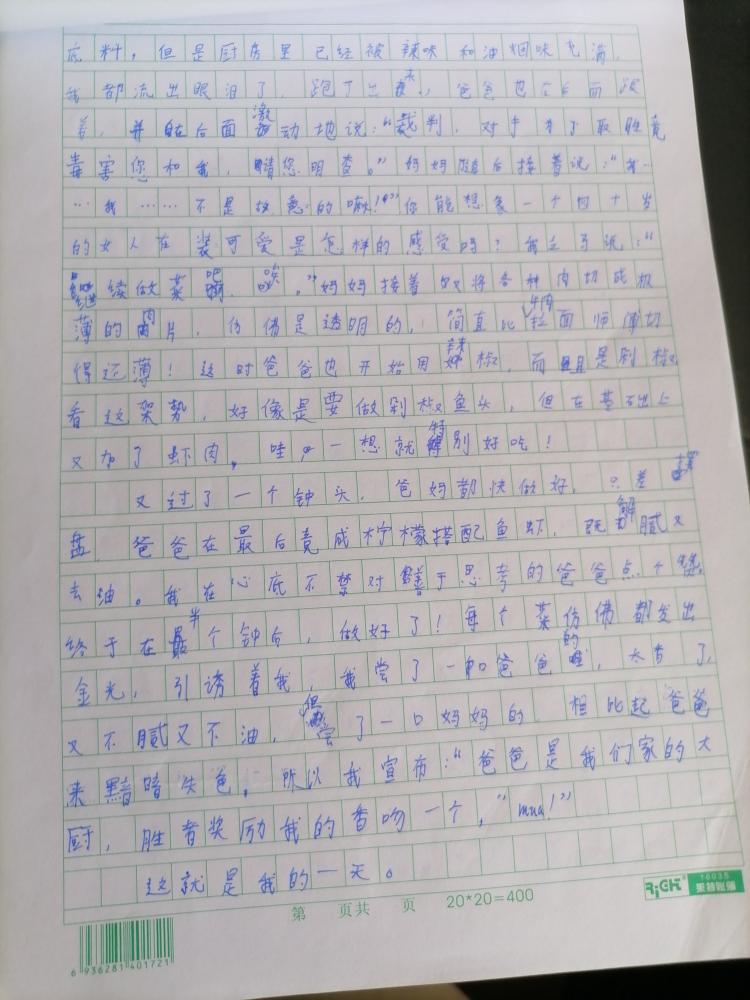 底料，但是厨房里已经被辣味和油烟味充满，
我都流出眼泪了，跑了出来，爸爸也在后面跟
着，并在后面激动地说：“裁判，对手为了取胜竟
毒害您和我，请您明查。”妈妈随后接着说：“我…
…我……不是故意的嘛！”你能想象一个四十岁
的女人在装可爱是怎样的感受吗？我立了说：“
继续做菜吧，唉。”妈妈接着又将各种肉切成极
薄的肉片，仿佛是透明的，简直比牛肉拉面师傅切
得还薄！这时爸爸也开始用辣椒，而且是剁椒，
看这架势，好像是要做剁椒鱼头，但在基础上
又加了虾肉，哇！一想就特别好吃！
又过了一个钟头，爸妈都快做好，只差摆
盘，爸爸在最后竟成柠檬搭配鱼虾，既解腻又
去油。我在心底不禁对善于思考的爸爸点个赞。
终于在半个钟后，做好了！每个菜仿佛都发出
金光，引诱着我，我尝了一口爸爸的，太香了，
又不腻又不油，但尝了一口妈妈的，相比起爸爸
来黯暗失色，所以我宣布：“爸爸是我们家的大
厨，胜者奖励我的香吻一个，“mua！”
这就是我的一天。
第 页共 页 20*20=400
RiGHT 16035
6 936281 401721